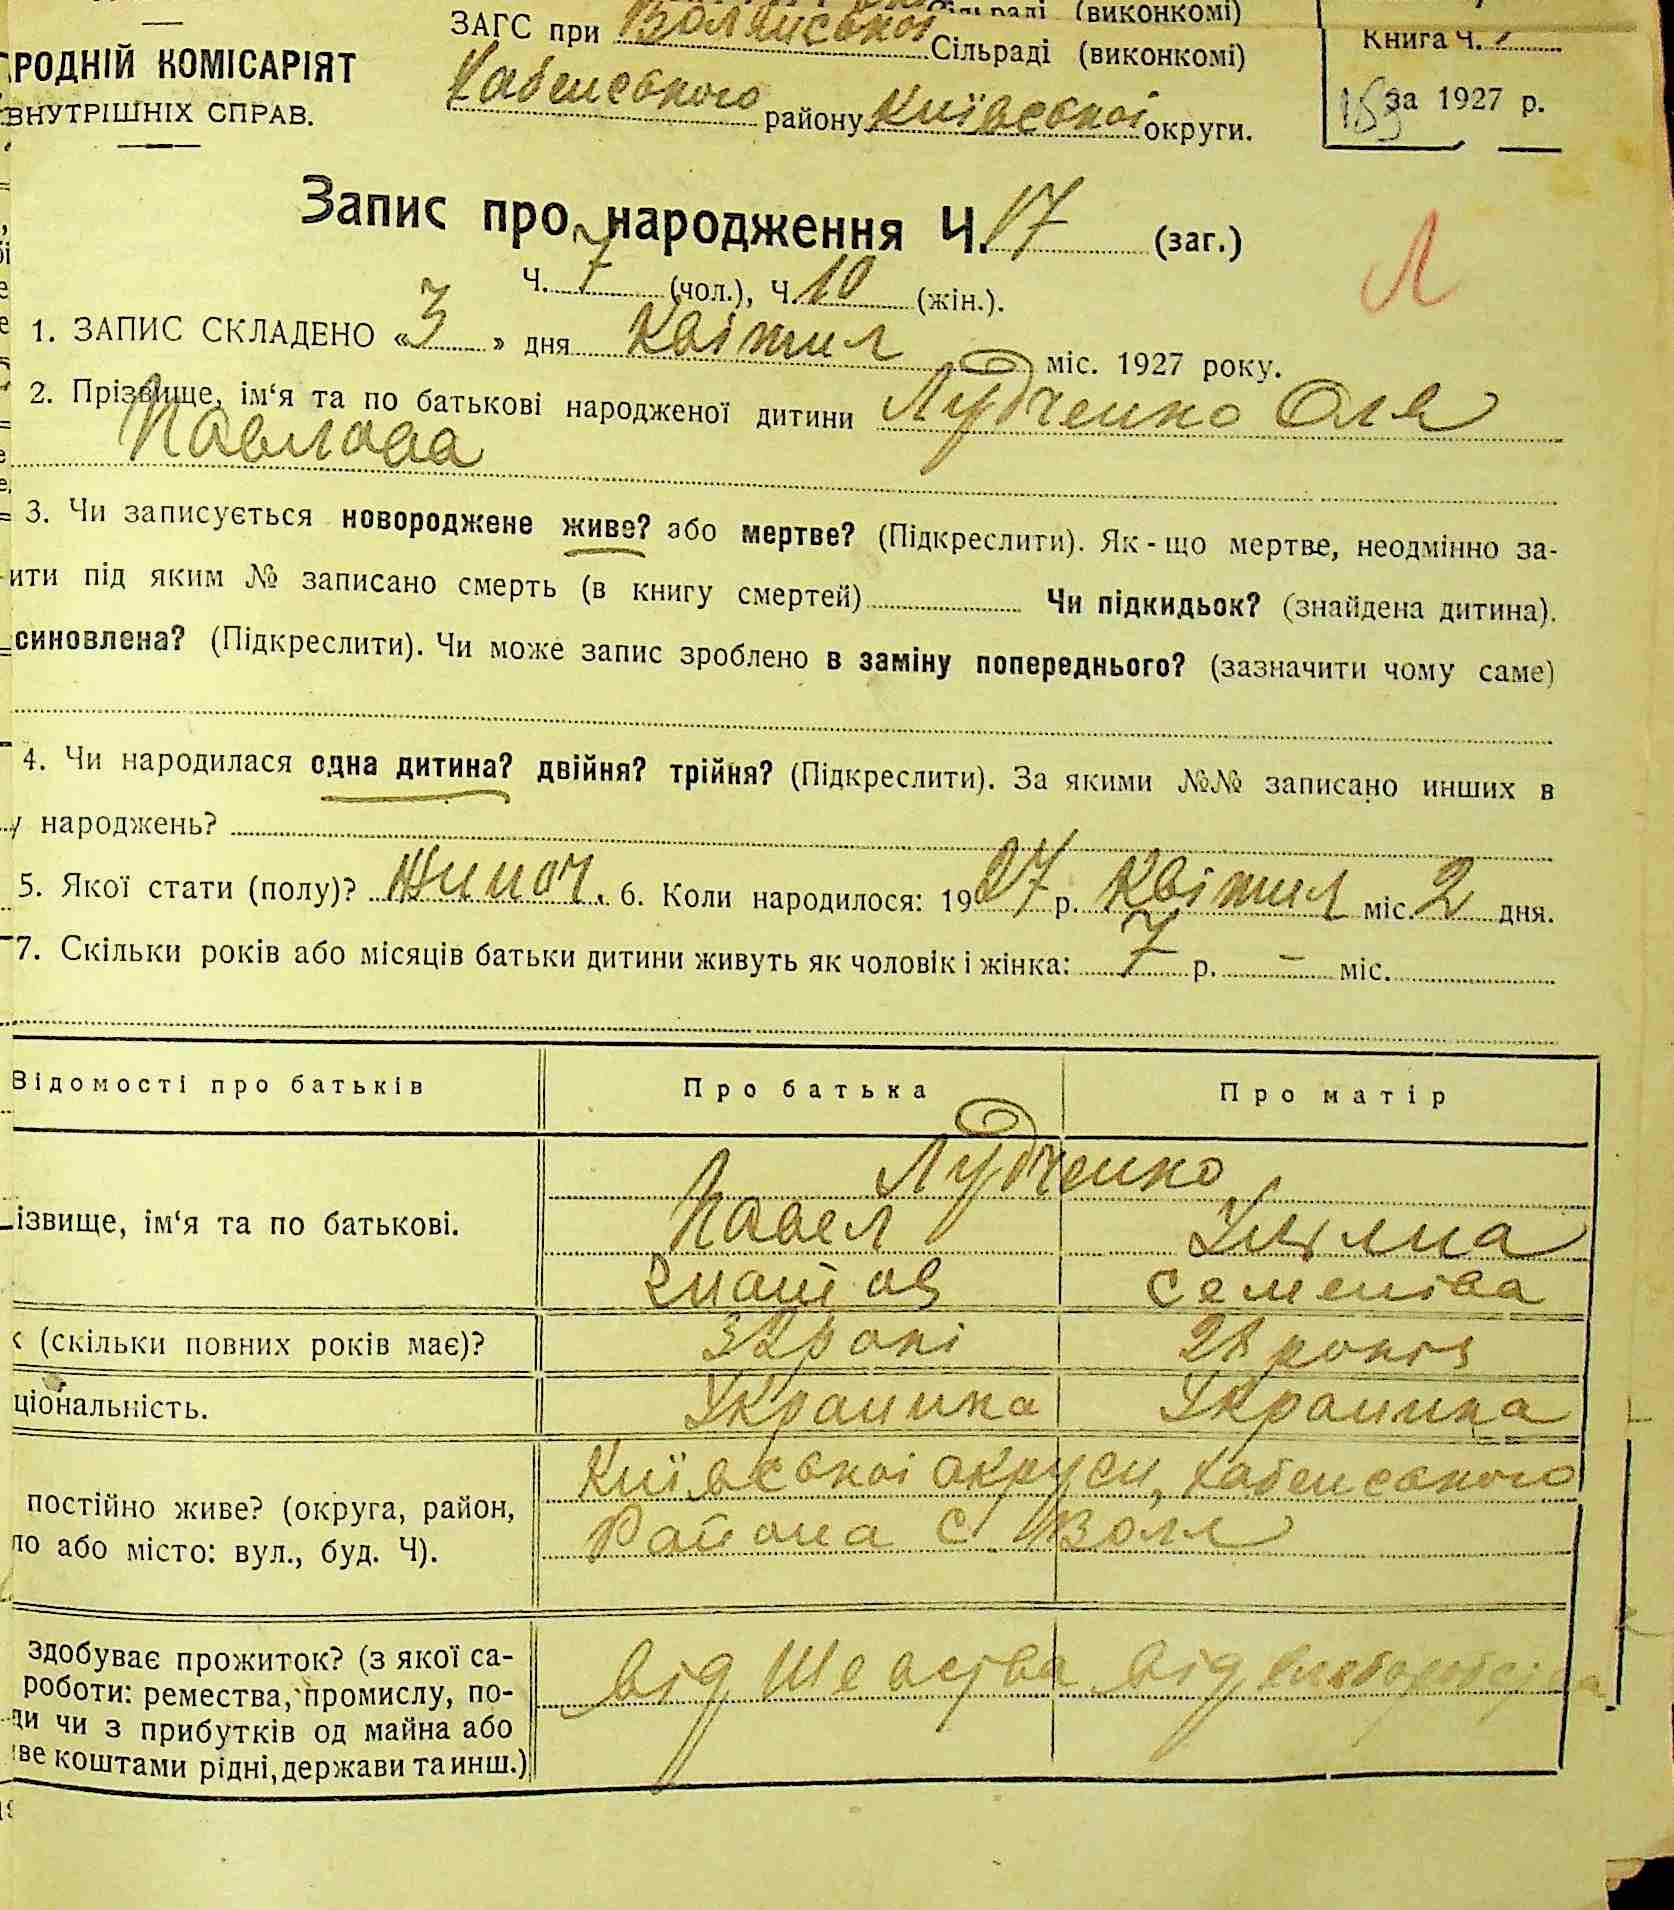 Сільраді (виконкомі)
РОДНІЙ КОМІСАРІЯТ
ВНУТРІШНІХ СПРАВ.
ЗАГС при Волянської Сільраді (виконкомі)
Хабенського району Київської округи.
Книга Ч.
за 1927 р.
Запис про народження Ч. 17 (заг.)
Л
Ч. 7 (чол.), Ч. 10 (жін.).
1. ЗАПИС СКЛАДЕНО «3» дня Квітня міс. 1927 року.
2. Прізвище, ім‘я та по батькові народженої дитини Лудченко Оля
Павлова
3. Чи записується новороджене живе? або мертве? (Підкреслити). Як-що мертве, неодмінно за-
ити під яким № записано смерть (в книгу смертей) Чи підкидьок? (знайдена дитина).
синовлена? (Підкреслити). Чи може запис зроблено в заміну попереднього? (зазначити чому саме)
4. Чи народилася одна дитина? двійня? трійня? (Підкреслити). За якими №№ записано инших в
у народжень?
5. Якої стати (полу)? Жиноч. 6. Коли народилося: 1927 р. Квітня міс. 2 дня.
7. Скільки років або місяців батьки дитини живуть як чоловік і жінка: 7 р. – міс.
Відомості про батьків Про батька Про матір
Лудченко
ізвище, ім‘я та по батькові. Павел Уляна
Игнатов Семенова
к (скільки повних років має)? 32 рокі 28 років
ціональність. Украинка Украинка
постійно живе? (округа, район, Київської округи, Хабенського
ло або місто: вул., буд. Ч). Района с. Воля
здобуває прожиток? (з якої са-
роботи: ремества, промислу, по- від Шевства від хлеборобства
ди чи з прибутків од майна або
ве коштами рідні, держави та инш.)